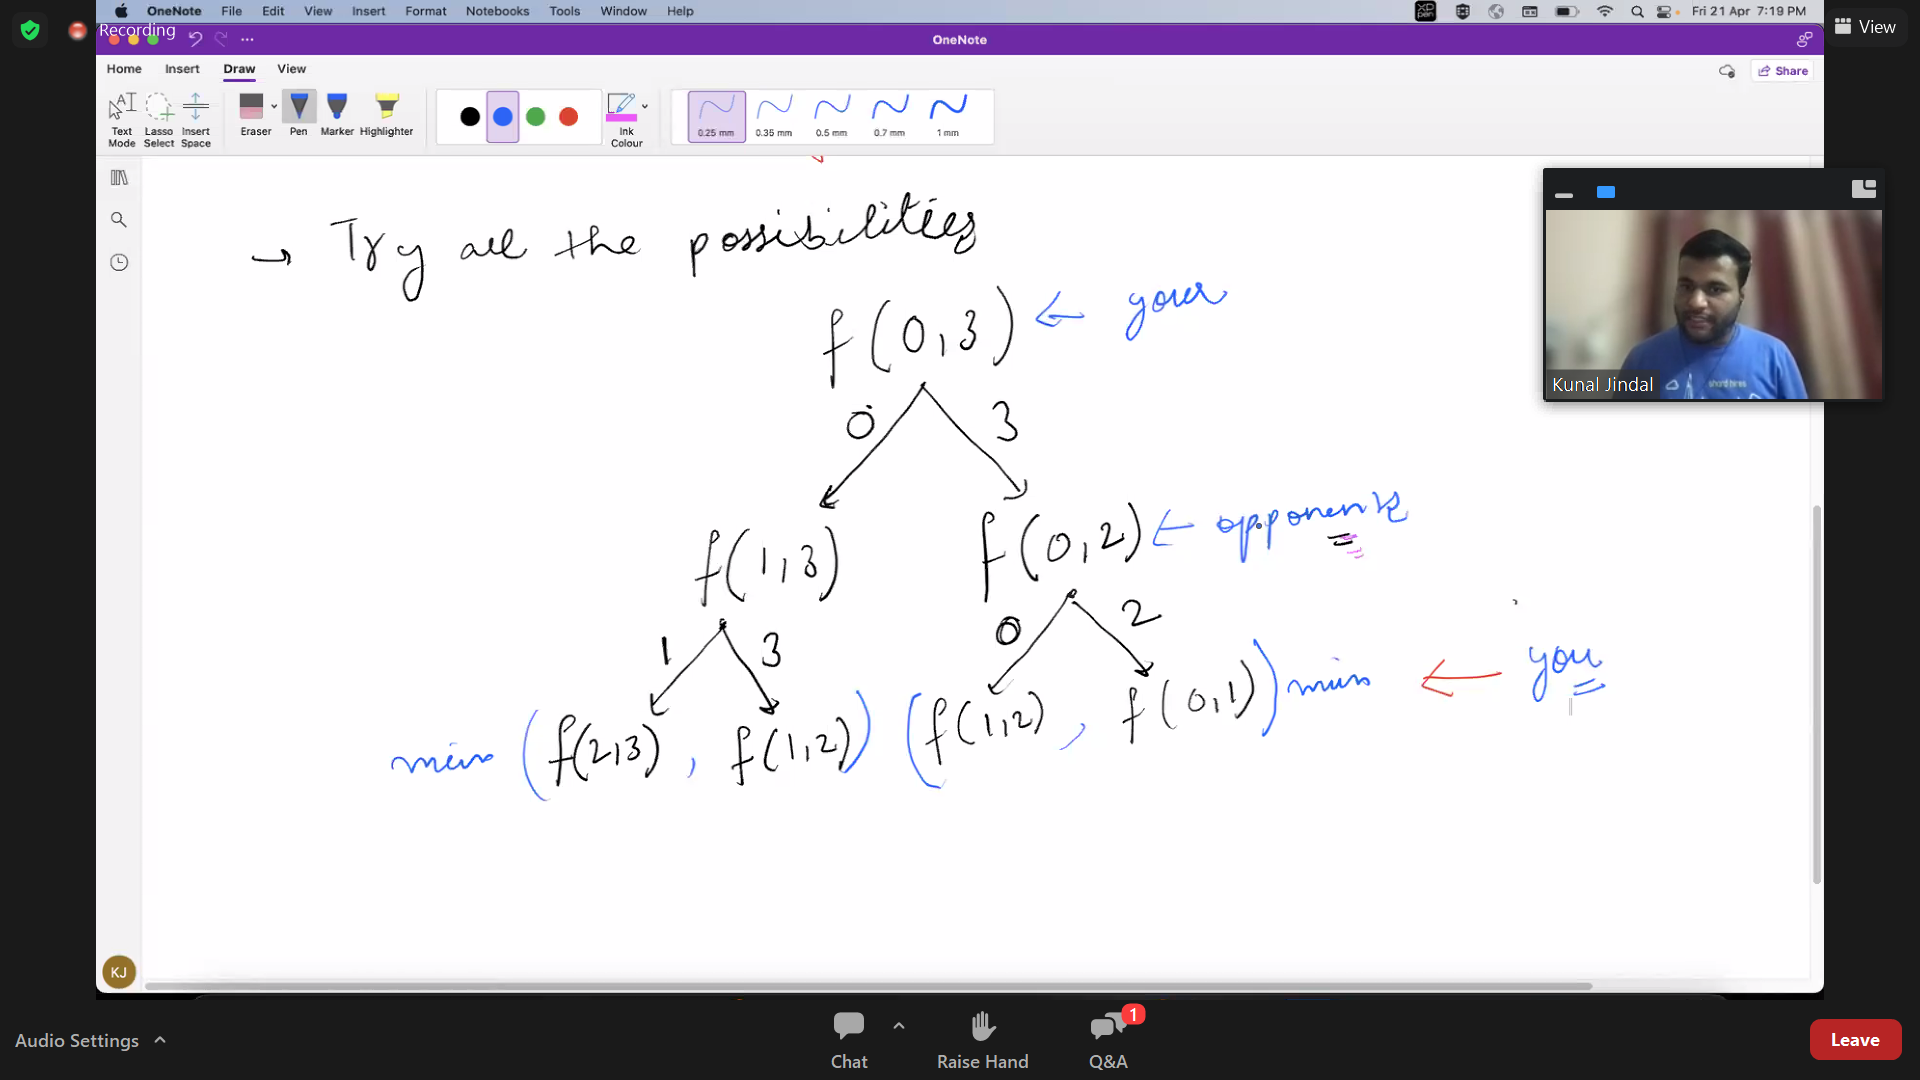 OneNote File Edit View Insert Format Draw Notebooks Tools Window Help
XP pen
Fri 21 Apr 7:19 PM
View
Recording
OneNote
Home Insert Draw View
Share
Text Mode
Lasso Select
Insert Space
Eraser
Pen
Marker
Highlighter
Ink Colour
0.25 mm
0.35 mm
0.5 mm
0.7 mm
1 mm
→ Try all the possibilities
f(0,3) ← your
0 3
f(1,3) f(0,2) ← opponent
1 3 0 2
min (f(2,3), f(1,2)) (f(1,2), f(0,1)) min ← you
Kunal Jindal
KJ
Audio Settings
Chat
Raise Hand
Q&A
1
Leave